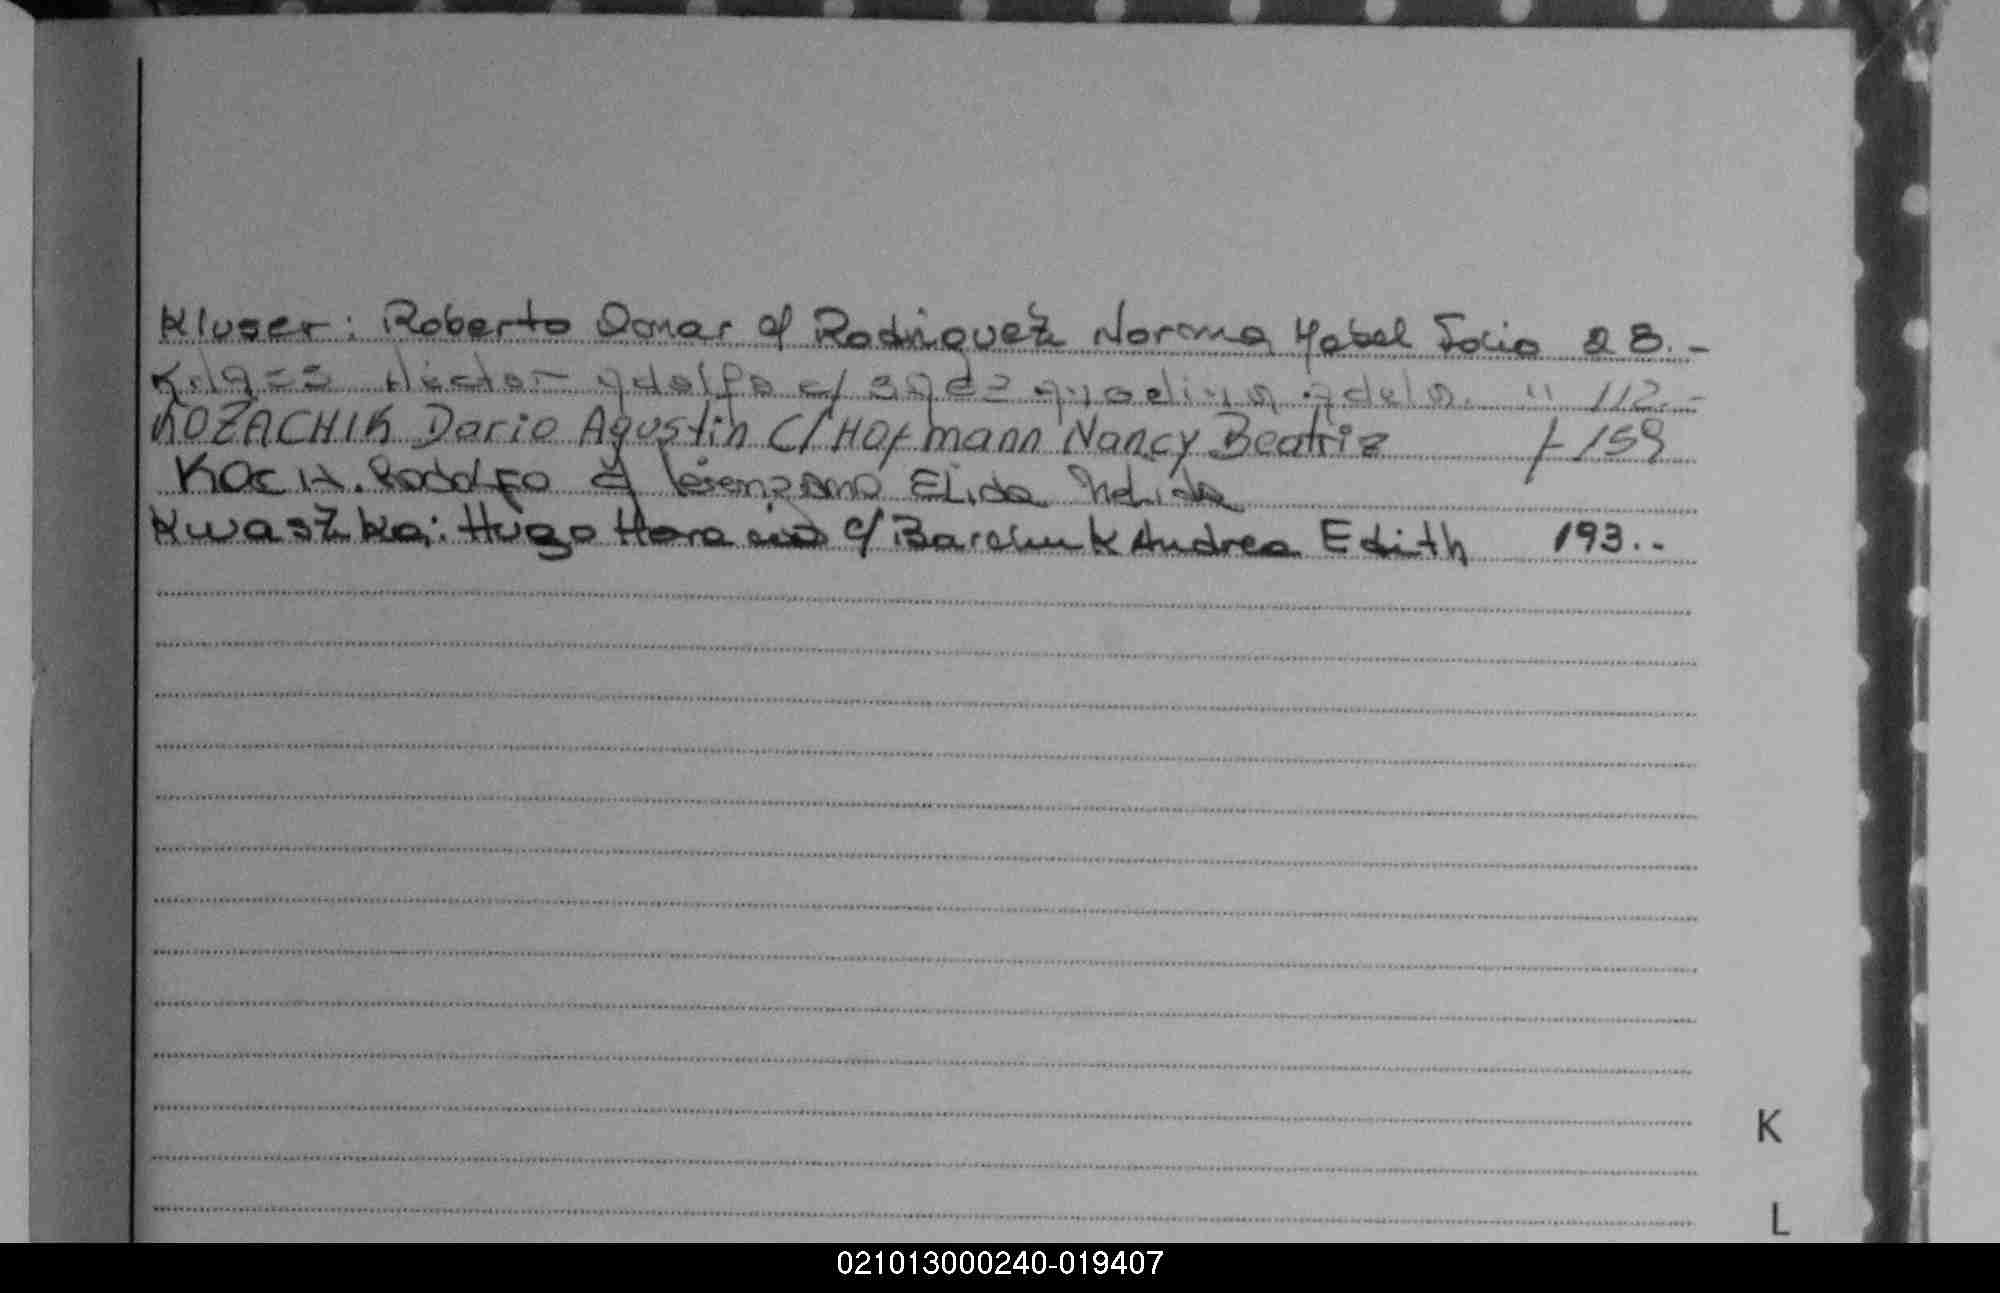 Kluser: Roberto Omar c/ Rodriguez Norma Mabel Folio 28.-
Héctor Adolfo c/ Adela. " 112.-
KOZACHIK Dario Agustin C/ Hofmann Nancy Beatriz f 159
KOCH. Rodolfo c/ Elida Nelida
Kwaszka: Hugo Horacio c/ Barchuk Andrea Edith 193..
K
L
021013000240-019407